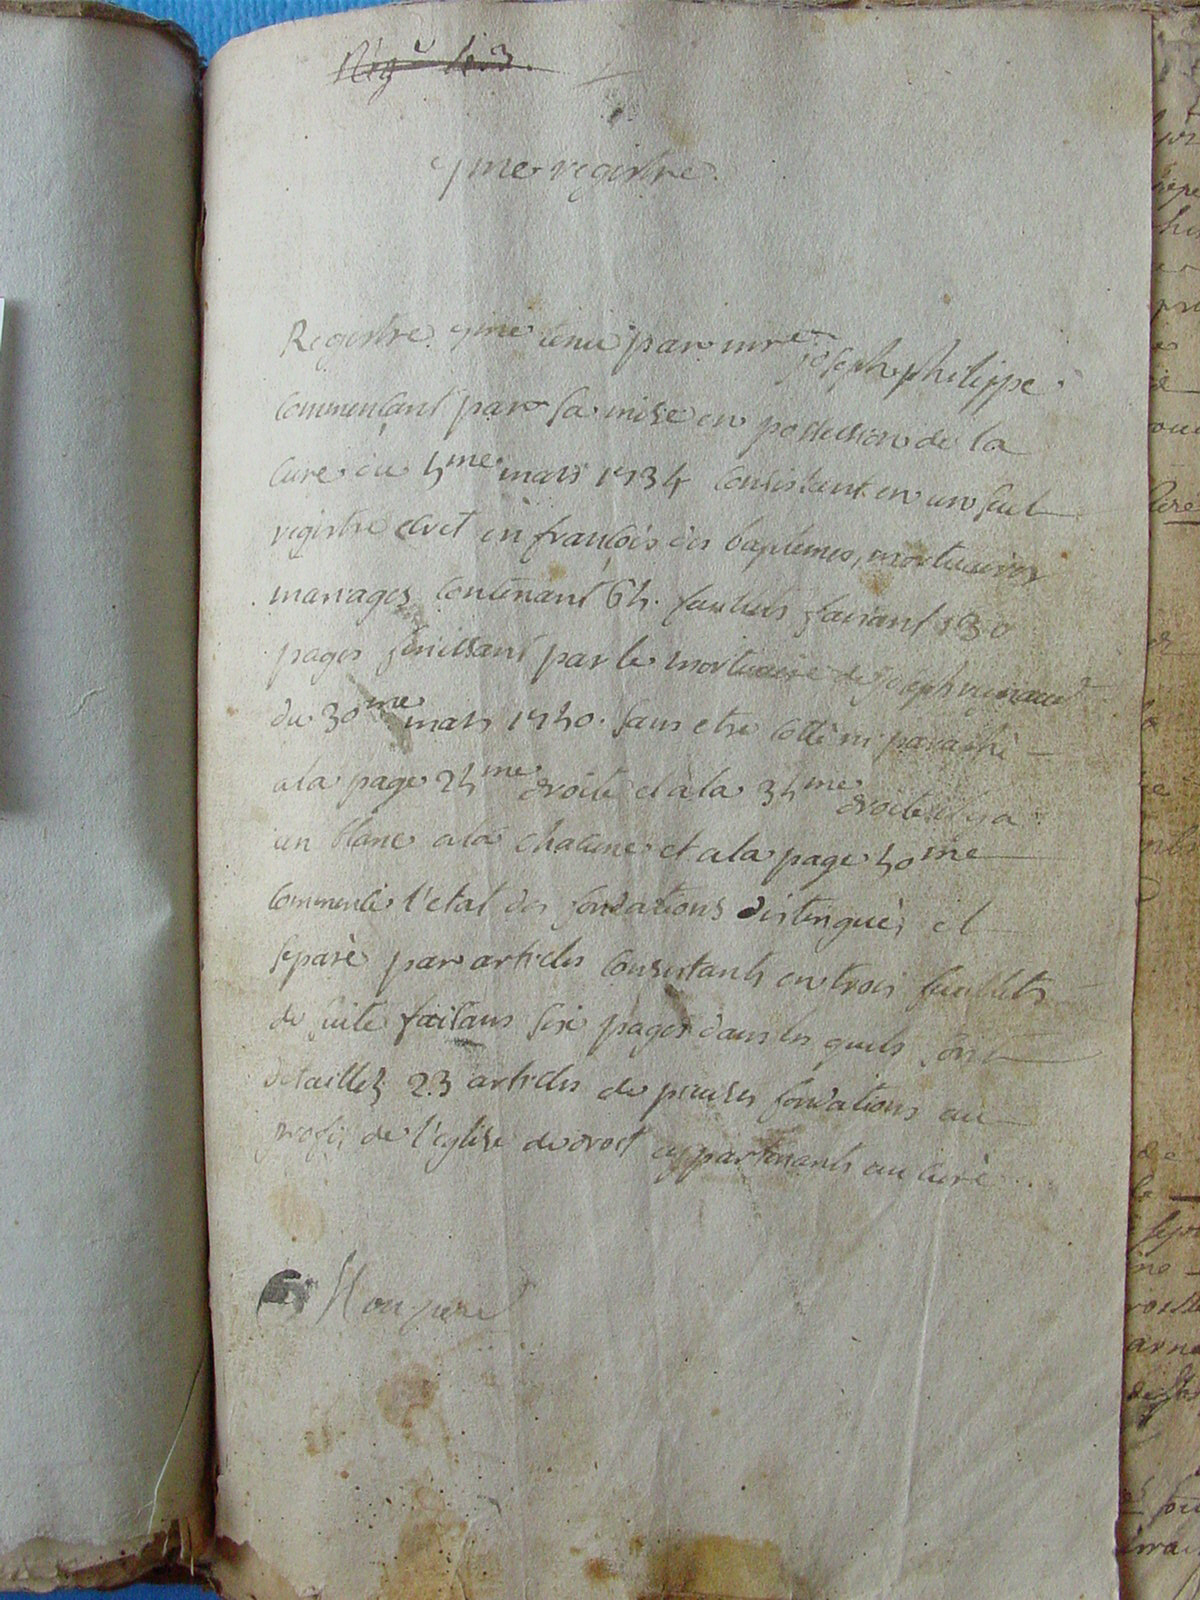 7me registre
Registre 7me tenu par mre joseph philippe
commençant par sa mise en possession de la
cure du 5me mars 1734 consistant en un seul
registre ecrit en françois des baptemes, mortuaires
mariages contenant 65. feuillets faisant 130
pages finissant par le mortuaire de joseph
du 30me mars 1750. sans etre cotté ni paraphé
a la page 25me droite et à la 35me droite il y a
un blanc a la chacune et a la page 50me
commence l'etat des fondations distingués et
separé par articles consistants en trois feuillets
de suite faisans six pages dans les quels sont
detaillés 23 articles de pieuses fondations au
profit de l'eglise de droit appartenants au curé